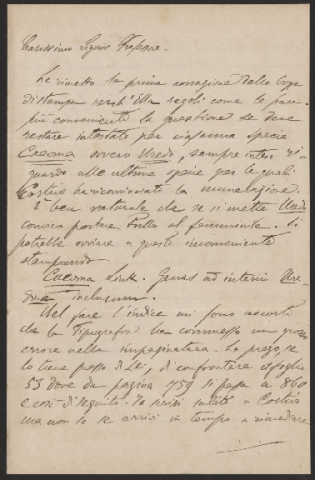 Carissimo Signor Trapane.
Le rimetto la prima correzione delle bozze
di stampa verso Ella regoli come le pare
più conveniente la questione se deve
restare intestate per ciascuna specie
Caeoma ovvero Uredo, sempre inter. ri-
guardo alle ultime specie per le quali
ha ricominciato la numerazione.
È ben naturale che se si mette Uredo
conviene portare tutto al femminile. Si
potrebbe ovviare a questo inconveniente
stampando
Caeoma Link. Genus ad interim Ure-
dinum inclusum.
Nel fare l'indice mi sono accorto
che la Tipografia ha commesso un grosso
errore nella impaginatura. La prego, se
lo tiene presso di sé, di confrontare il foglio
53 dove da pagina 759 si passa a 860
e così di seguito. Io scrissi subito a
ma non so se arrivi in tempo a rimediare